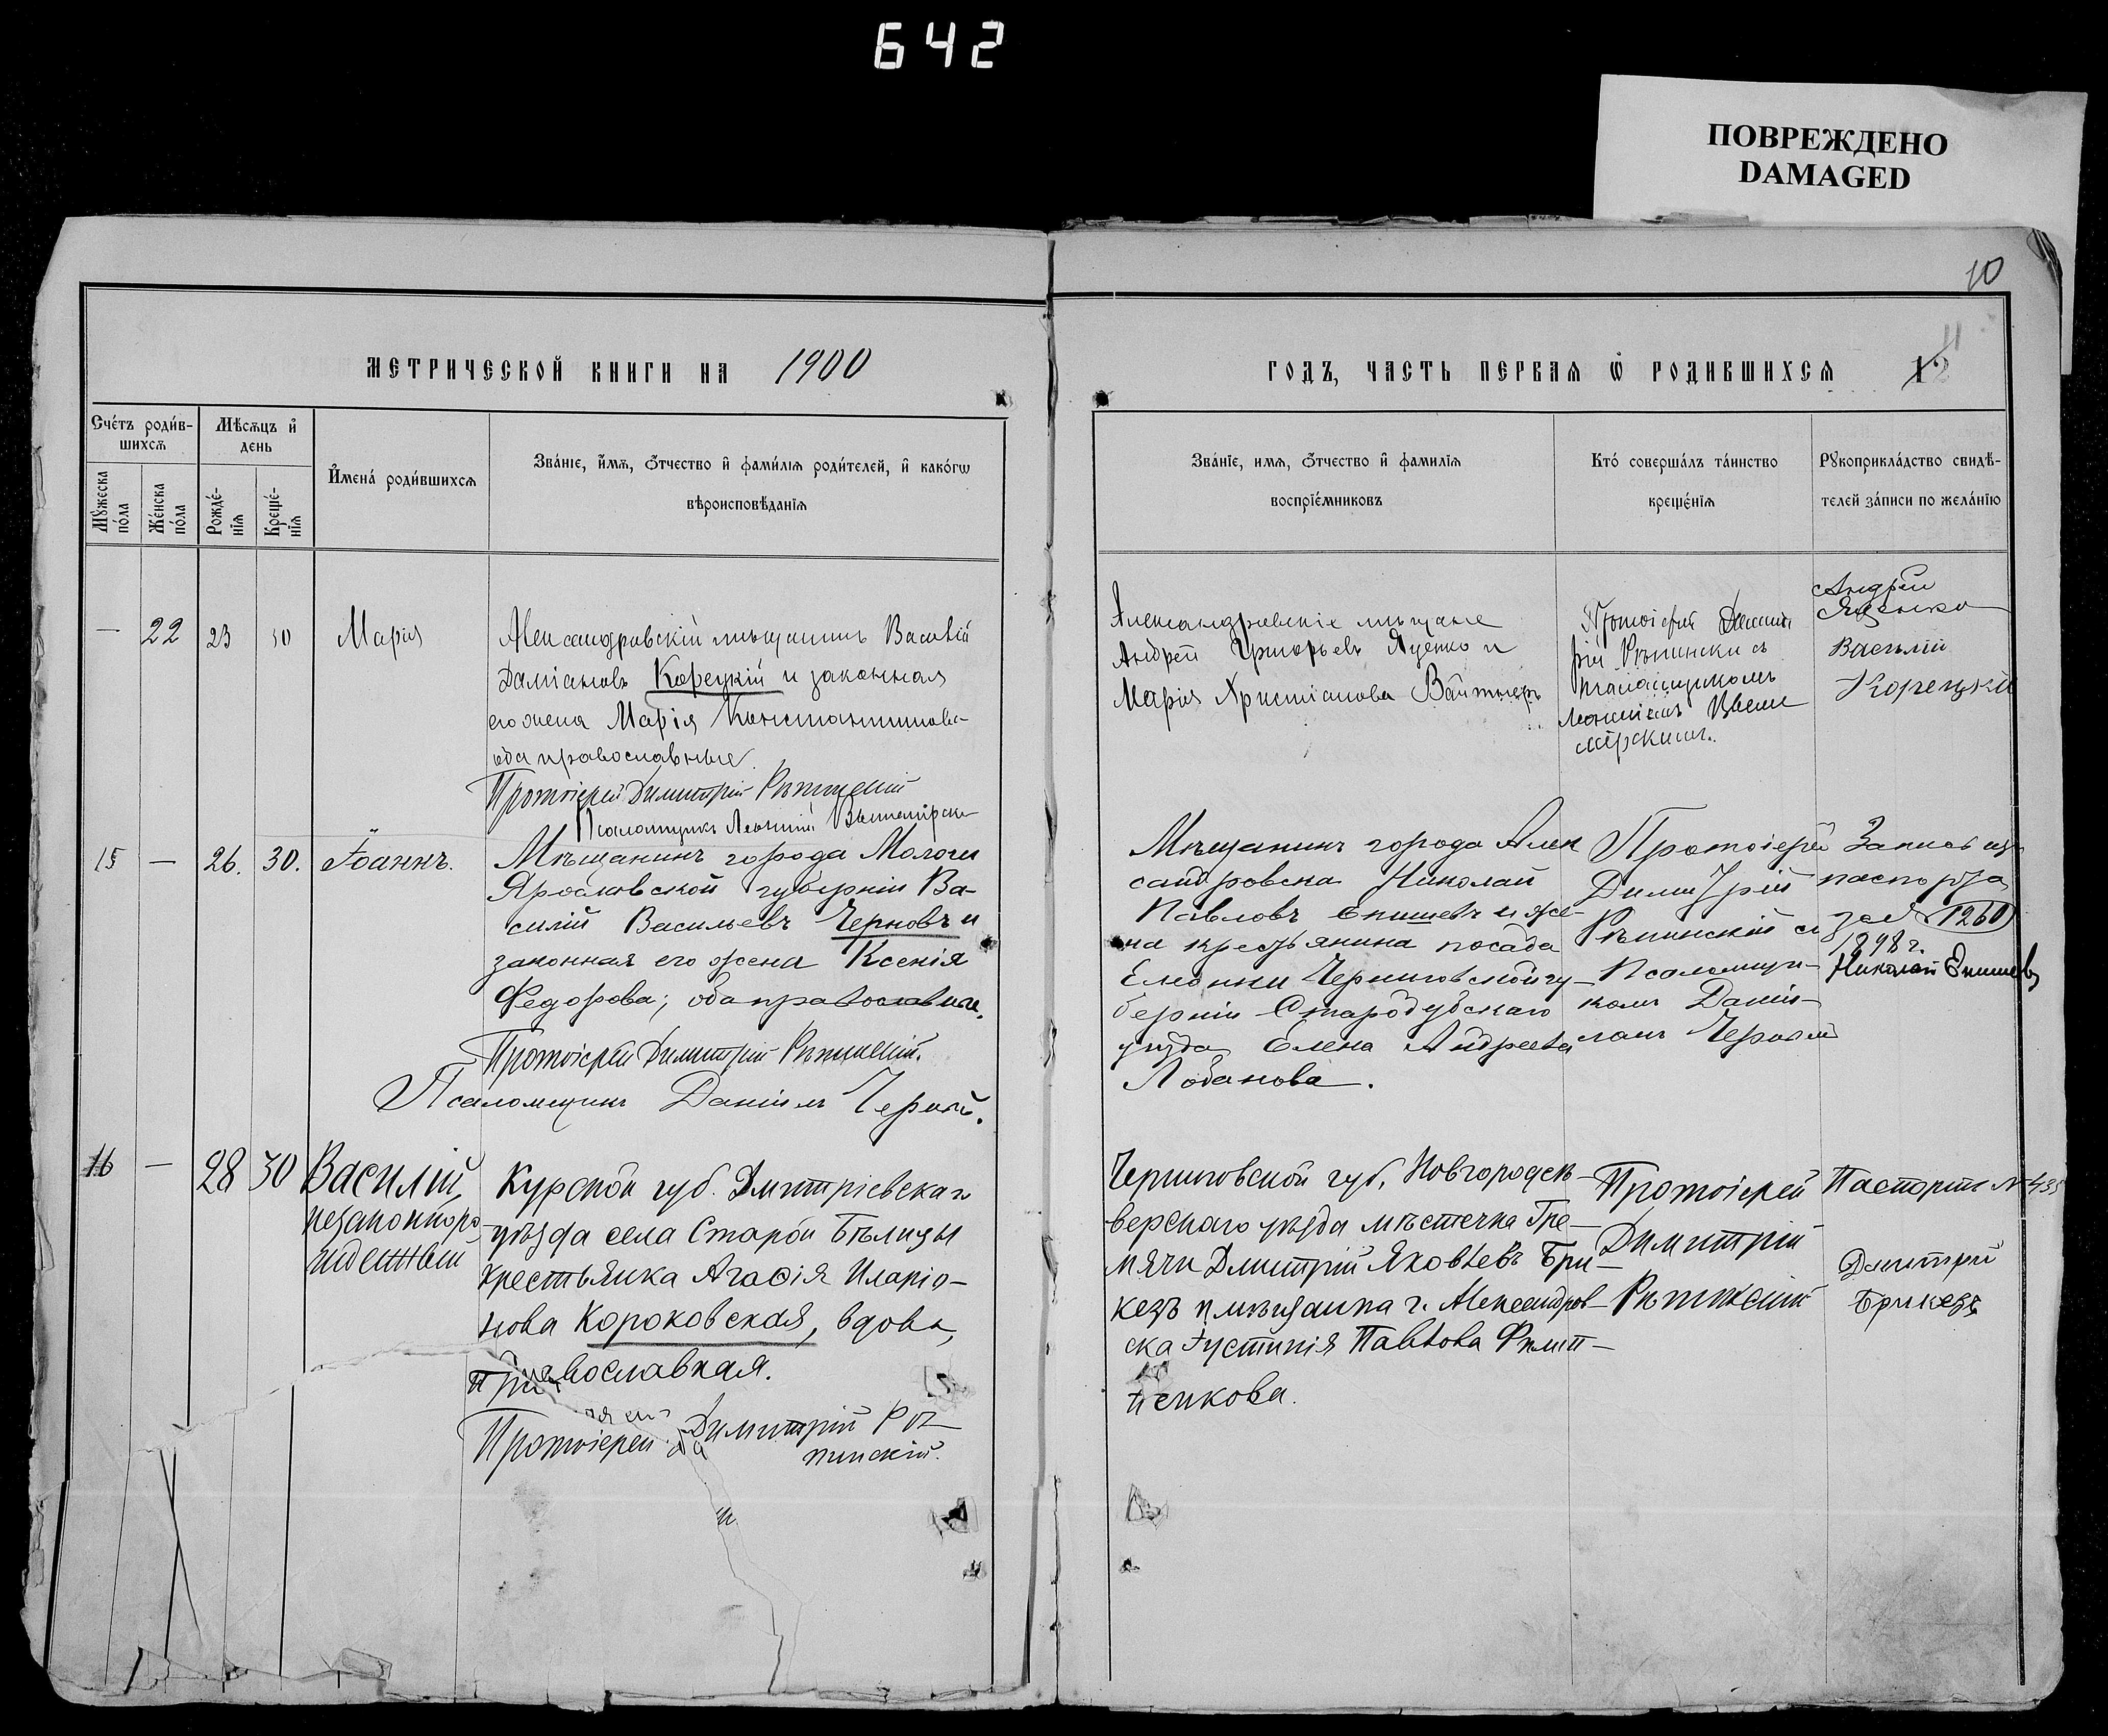 642
ПОВРЕЖДЕНО
DAMAGED
10
МЕТРИЧЕСКОЙ КНИГИ НА 1900
ГОДЪ, ЧАСТЬ ПЕРВАЯ Ѡ РОДИВШИХСЯ
11
12
Счётъ роди́в-
шихсѧ
Мѣ́сѧцъ и҆
день
Мꙋжеска
по́ла
Же́нска
по́ла
Рожде́-
нїѧ
Креще́-
нїѧ
И҆мена̀ роди́вшихсѧ
Зва́нїе, и҆́мѧ, ѻ҆́тчество и҆ фами́лїѧ роди́телей, и҆ како́гѡ
вѣроисповѣ́данїѧ
Зва́нїе, имѧ, ѻ҆́тчество и҆ фамилїѧ
воспрїе́мниковъ
Кто́ соверша́лъ та́инство
креще́нїѧ
Рꙋкоприкла́дство свидѣ́-
телей за́писи по жела́нїю
— 22 23 30 Марія
Александровскій мѣщанинъ Василій
Даміановъ Корецкій и законная
его жена Марія Константинова
оба православные.
Протоіерей Димитрій Рѣпинскій
Псаломщикъ Леонтій
Александровскіе мѣщане
Андрей Григорьевъ Яценко и
Марія Христіанова
Протоіерей Димит
рій Рѣпински съ
псаломщикомъ
Андрей
Яценко
Василій
Корецкій
15 — 26. 30. Іоаннъ.
Мѣщанинъ города Мологи
Ярославской губерніи Ва-
силій Васильевъ Черновъ и
законная его жена Ксенія
Федорова; оба православные.
Протоіерей Димитрій Рѣпинскій.
Псаломщикъ Даніилъ Черный.
Мѣщанинъ города Алек
сандровска Николай
Павловъ Епишевъ и же-
на крестьянина посада
Елионки Черниговской гу-
берніи Стародубскаго
уѣзда Елена Андреева
Лобанова.
Протоіерей
Димитрій
Рѣпинскій съ
Псаломщи-
комъ Даніи-
ломъ Черным
Запись из
паспорта
за № 1260
1898 г.
Николай Епишевъ
16 — 28 30 Василій,
незаконноро-
жденный
Курской губ. Дмитріевскаго
уѣзда села Старой Бѣлицы
крестьянка Агаѳія Иларіо-
нова Короковская, вдова,
православная.
Протоіерей Димитрій Рѣ-
пинскій.
Черниговской губ. Новгородсѣ-
верскаго уѣзда мѣстечка Гре-
мячи Дмитрій Яковлевъ Бри-
кезъ и мѣщанка г. Александров-
ска Іустинія Павлова Филип-
пенкова.
Протоіерей
Димитрій
Рѣпинскій
Паспортъ № 435
Дмитрий
Брикезъ